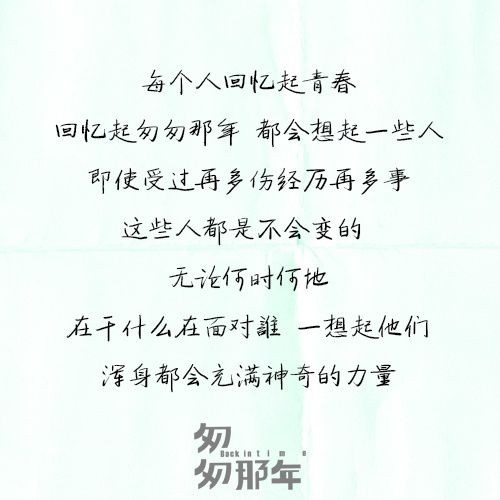 每个人回忆起青春
回忆起匆匆那年 都会想起一些人
即使受过再多伤经历再多事
这些人都是不会变的
无论何时何地
在干什么在面对誰 一想起他们
浑身都会充满神奇的力量
匆
Back in time
匆那年